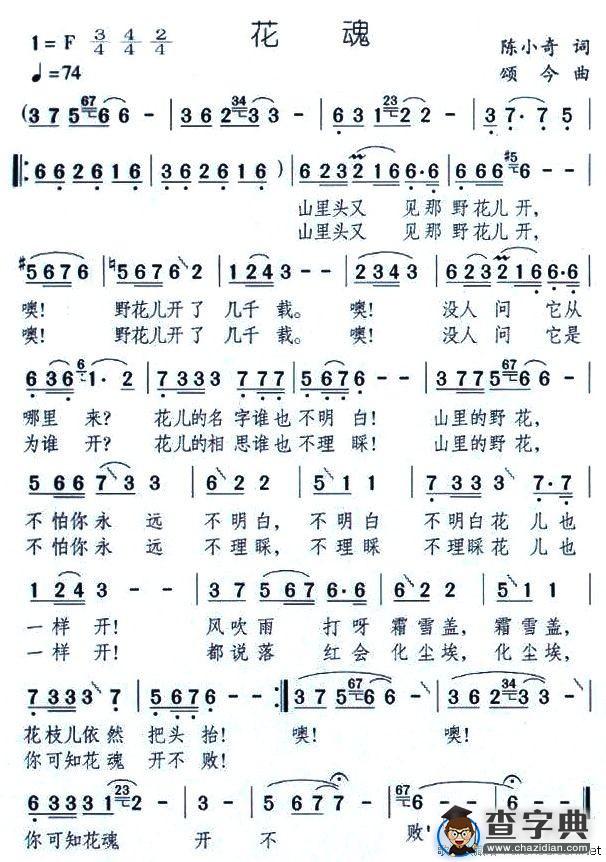 花 魂
1=F 3/4 4/4 2/4
陈小奇 词
♩=74
颂 今 曲
(3 7 5 67 6 6 - | 3 6 2 34 3 3 - | 6 3 1 23 2 2 - | 3 7· 7 5 |
‖: 6 6 2 6 1 6 | 3 6 2 6 1 6 | 6 - - ) | 6 2 3 2 1 6 6·6 | 6 6 1 #5 6 - - |
山里头又 见那野花儿开,
山里头又 见那野花儿开,
#5 6 7 6 | ♮5 3 5 6 7 7 | 1 2 4 3 - - | 2 3 4 3 | 6 2 3 2 1 6 6·6 |
噢! 野花儿开了 几千 载。 噢! 没人 问 它从
噢! 野花儿开了 几千 载。 噢! 没人 问 它是
6 3 6 6 1· 2 | 7 3 3 3 7 7 7 | 5 6 7 6 - - | 3 7 7 5 67 6 |
哪里 来? 花儿的名 字谁也 不明 白! 山里的野 花,
为谁 开? 花儿的相 思谁也 不理 睬! 山里的野 花,
5 6 6 7 3 3 | 6 2 2 | 5 1 1 | 6 2 2 3 3 | 7·7 |
不怕你永 远 不明白, 不明白 不明白花 儿也
不怕你永 远 不理睬, 不理睬 不理睬花 儿也
1 2 4 3 - - | 3 7 5 6 7 6·6 | 6 2 2 | 5 1 1 |
一样 开! 风吹雨 打呀 霜雪盖, 霜雪盖,
一样 开! 都说落 红会 化尘埃, 化尘埃,
7 3 3 3 3 7 | 5 6 7 6 | 6 - - :‖ 3 7 5 67 6 6 | 3 6 2 34 3 3 |
花枝儿依然 把头 抬! 噢! 噢!
你可知花魂 开不 败!
6 3 3 3 3 1 23 2 | 2 - - | 3 7 5 6 | 67 6 - - - ‖
你可知花魂 开 不 败!
查字典
www.chazidian.com